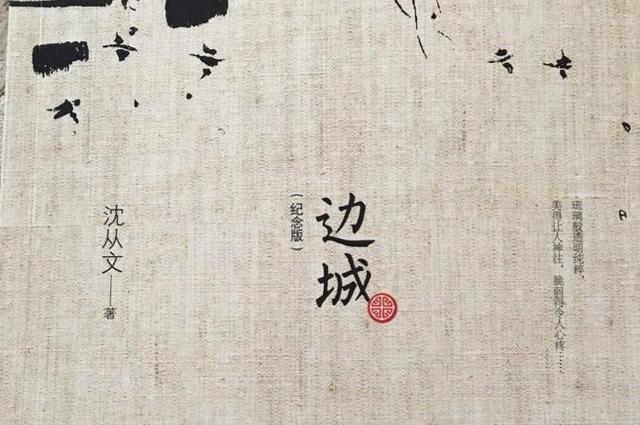 琉璃般透明纯粹,
美得让人神往，脆弱得令人心疼……
边城
（纪念版）
沈从文——著